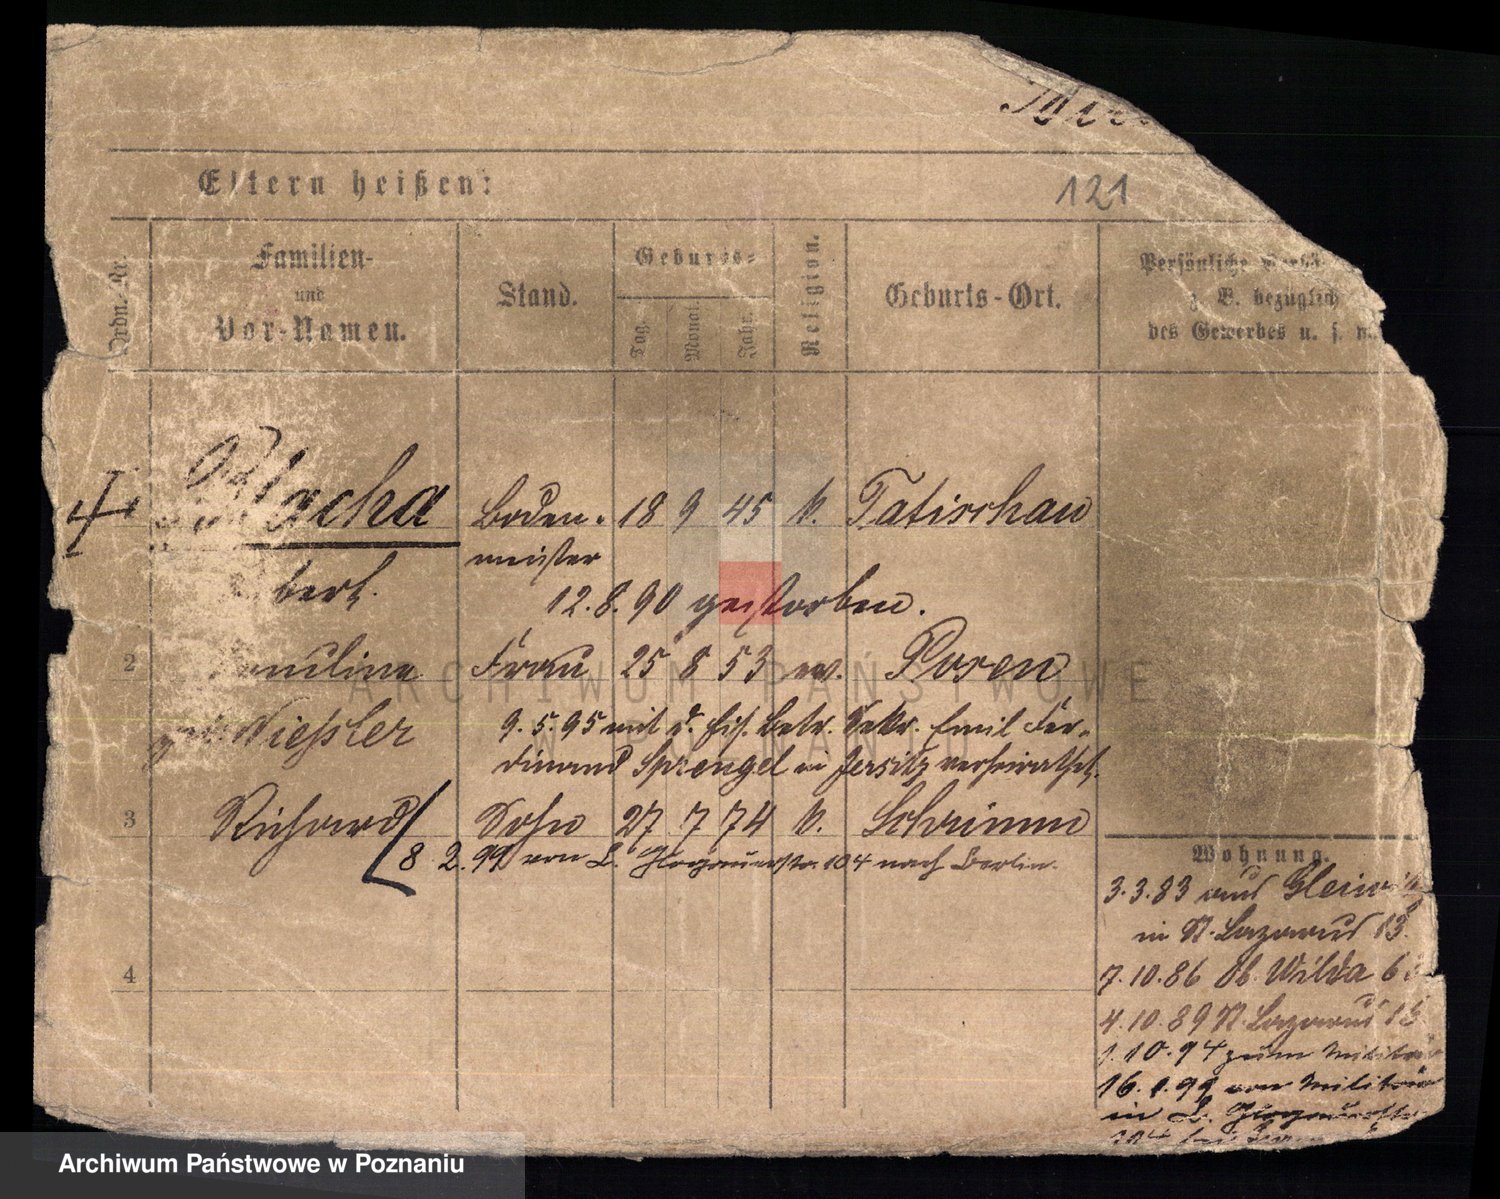 121
Eltern heißen:
Ordn.-Nr.
Familien-
und
Vor-Namen.
Stand.
Geburts-
Tag.
Monat.
Jahr.
Religion.
Geburts-Ort.
Persönliche
z. B. bezüglich
des Gewerbes u. s. w.
Blacha
Boden-
meister
18 9 45 k. Tatischau
12.8.90 gestorben.
2
Pauline Frau 25 8 53 ev. Posen
geb. Nießler
9.5.95 mit d. Eis. Betr. Sekr. Emil Fer-
dinand Sprengel in Jersitz verheirathet.
3
Richard Sohn 27 7 74 k. Schrimm
8 2. 99 von L. Glogauerstr. 104 nach Berlin.
4
Wohnung.
3.3.83 aus Gleiwitz
in St. Lazarus 13.
7.10.86 Ob. Wilda
4.10.89 St. Lazarus
1.10.94 zum Militär
16.1.99 vom Militär
in L. Glogauerstr.
104
ARCHIWUM PAŃSTWOWE
W POZNANIU
Archiwum Państwowe w Poznaniu